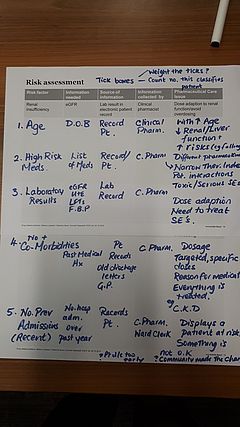 Weight the ticks?
Tick boxes - Count no. this classifies patient
Risk assessment
Risk factor Information needed Source of information Information collected by Pharmaceutical Care Issue
Renal insufficiency eGFR Lab result in electronic patient record Clinical pharmacist Dose adaption to renal function/avoid overdosing
1. Age D.O.B Record Pt. Clinical Pharm. With ↑ Age ↓ Renal/Liver function + ↑ risks (eg falling
2. High Risk Meds. List of Meds Record/ Pt. C. Pharm Different pharmacokin
Narrow Ther. Index
Pot. interactions
Toxic/Serious SEs
3. Laboratory Results eGFR U+E LFTs F.B.P Lab Record C. Pharm
Dose adaption
Need to treat
S.E.s.
4. No + Co-Morbidities Past Medical Hx Pt Records Old discharge letters G.P. C. Pharm. Dosage
Targeted, specific doses
Reason for medical
Everything is treated.
eg C.K.D
5. No. Prev Admissions (Recent) No. hosp adm. over past year Records Pt. C. Pharm. Ward Clerk Displays a patient at risk
Something is not O.K
too early
? Community made the chan